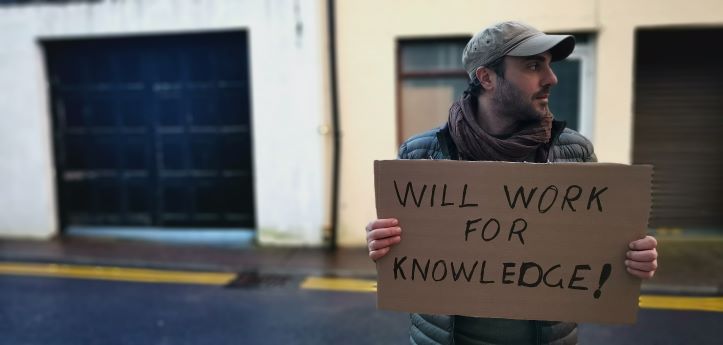 WILL WORK
FOR
KNOWLEDGE!